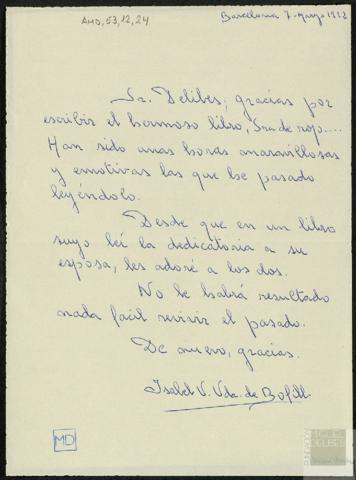 AMD, 53, 12, 24
Barcelona 7-Marzo 1992
Sr. Delibes; gracias por
escribir el hermoso libro, Sra de rojo....
Han sido unas horas maravillosas
y emotivas las que he pasado
leyéndolo.
Desde que en un libro
suyo leí la dedicatoria a su
esposa, les adoré a los dos.
No le habrá resultado
nada fácil revivir el pasado.
De nuevo, gracias.
Isabel V. Vda. de Bofill
MD